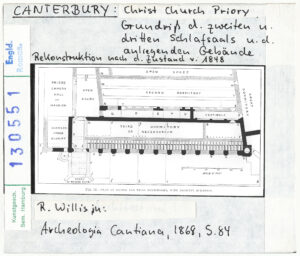 CANTERBURY: Christ Church Priory,
Grundriß d. zweiten u.
dritten Schlafsaals u. d.
anliegenden Gebäude
Rekonstruktion nach d. Zustand v. 1848
Engld.
Romanik
130551
Kunstgesch.
Sem. Hamburg
OPEN COURT
SECOND DORMITORY
THIRD DORMITORY
R. Willis in:
Archeologia Cantiana, 1868, S. 84